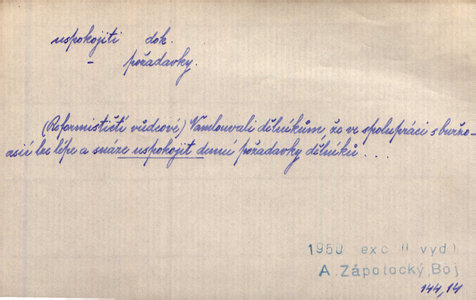 uspokojiti dok.
- požadavky.
(Reformističtí vůdcové) Namlouvali dělníkům, že ve spolupráci s buržo-
asií lze lépe a snáze uspokojit denní požadavky dělníků...
1950 exc (I vyd)
A. Zápotocký, Boj
144,14